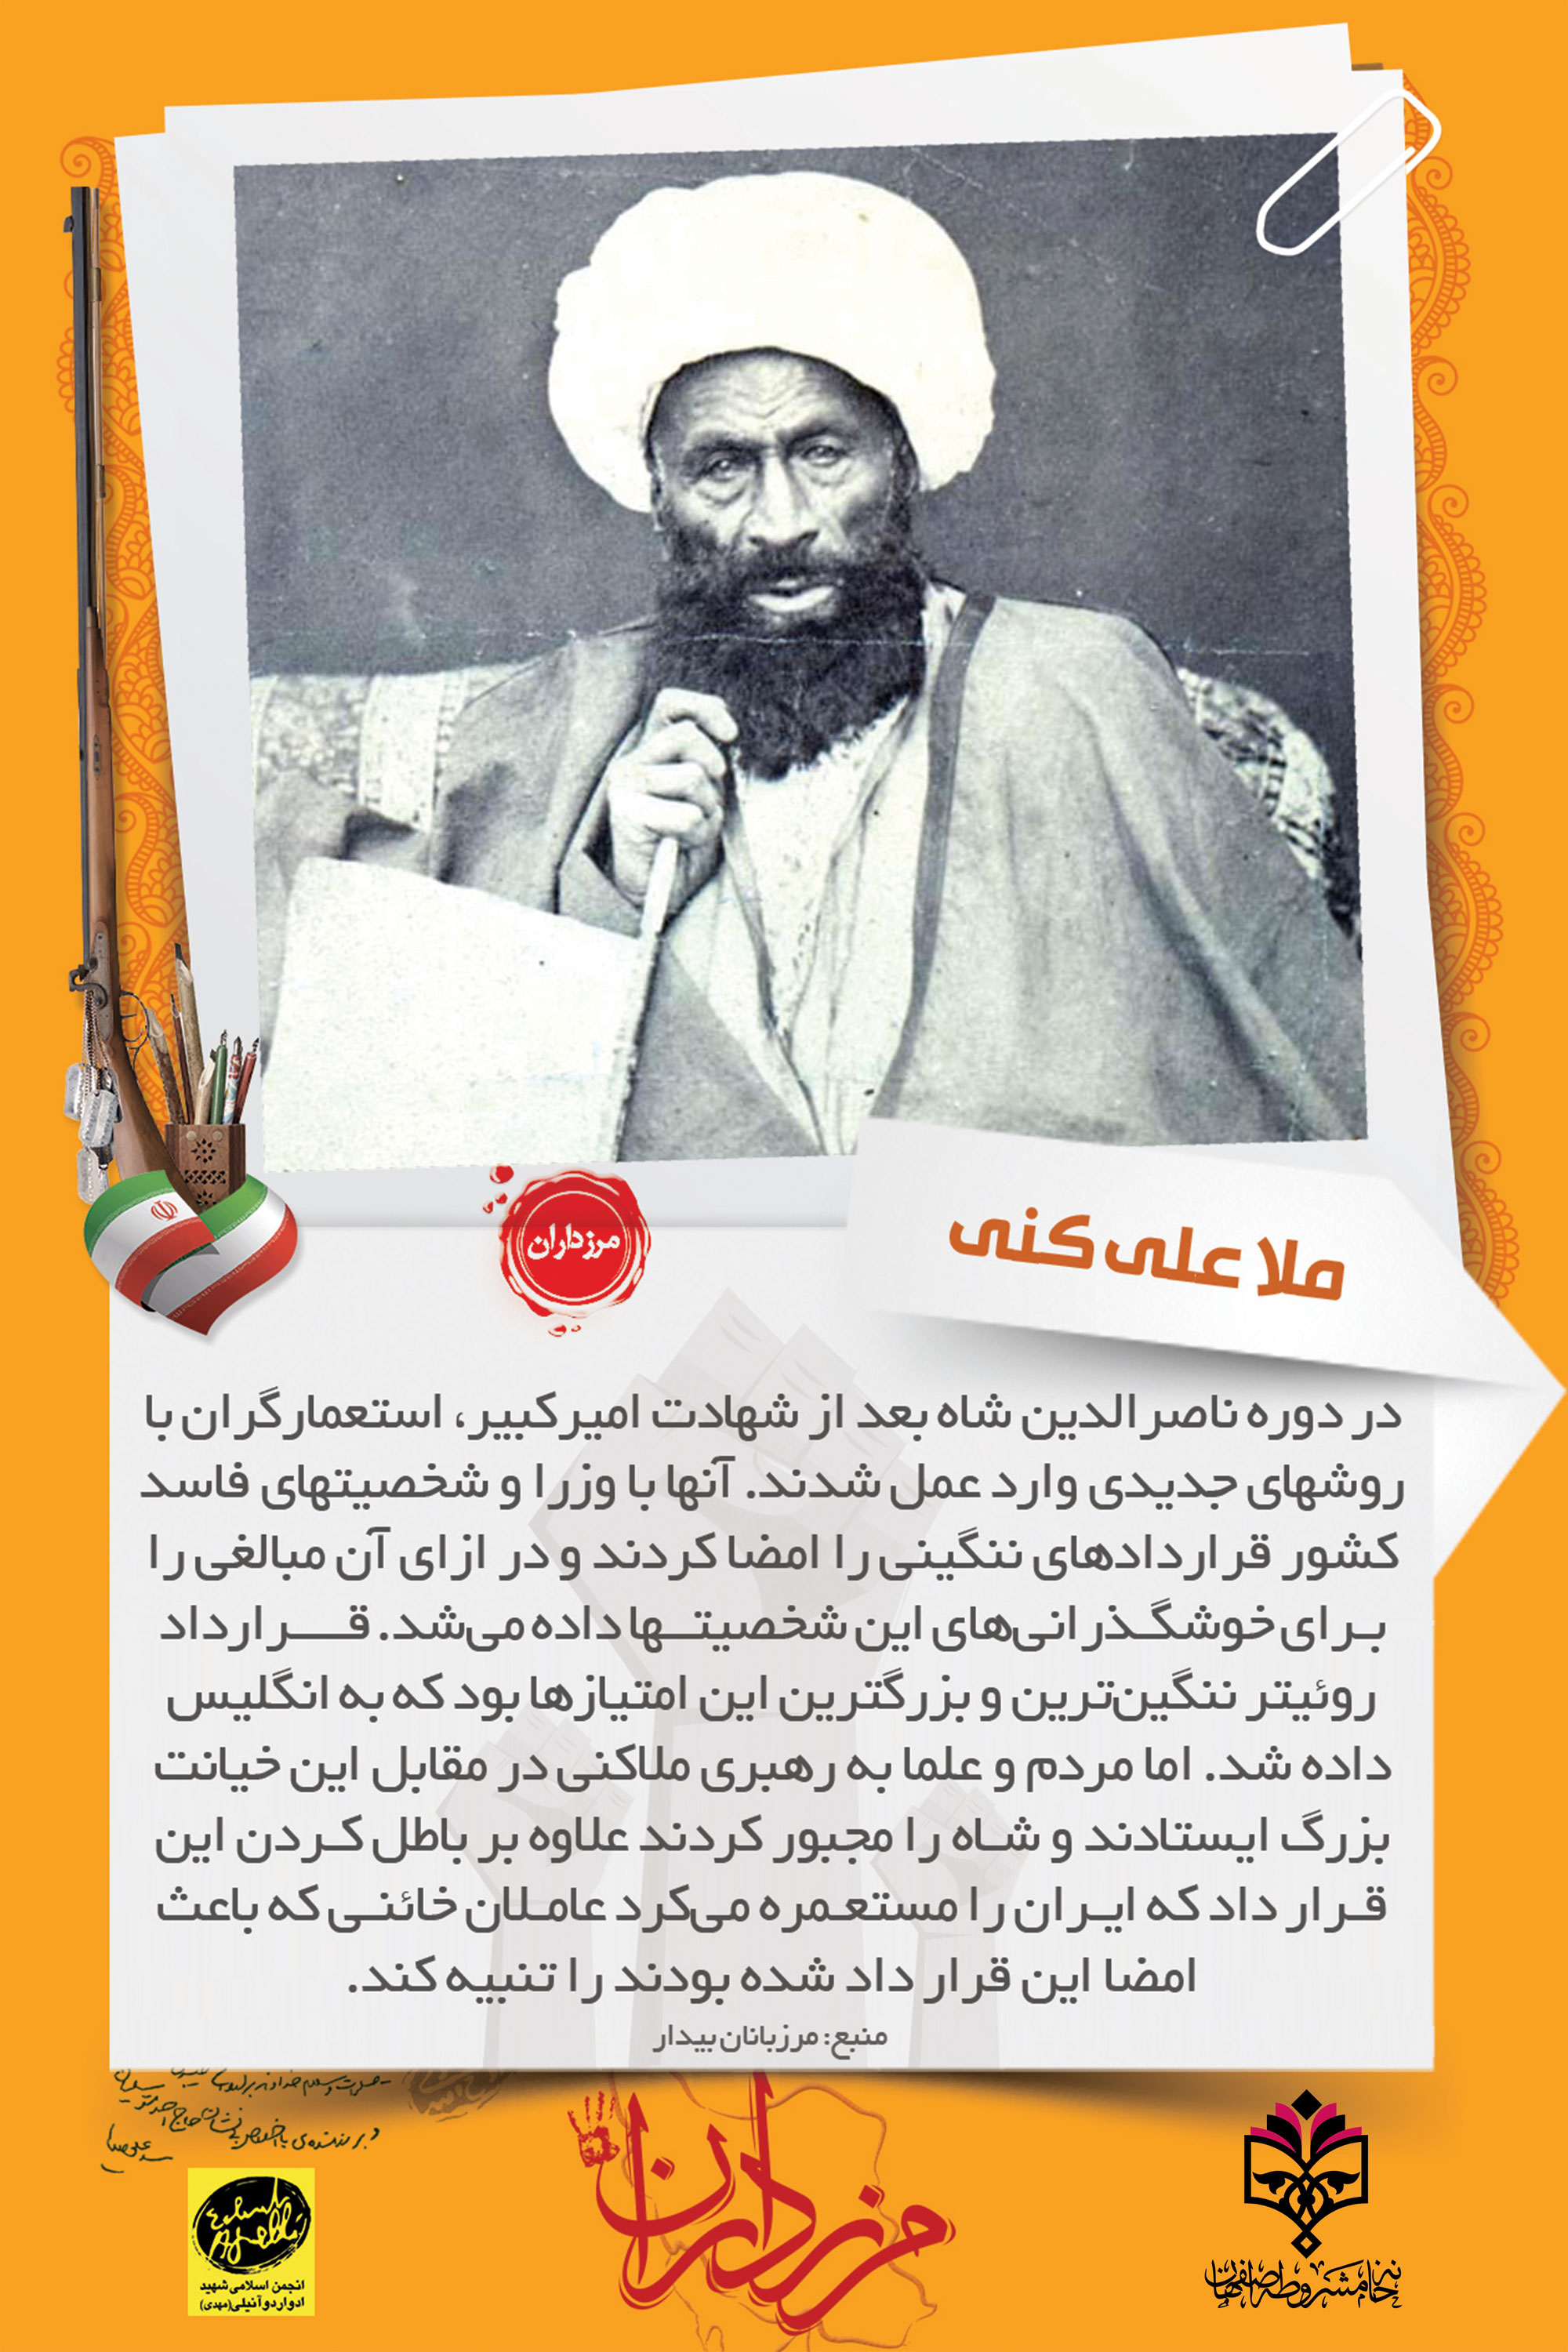 مرزداران
ملا علی کنی
در دوره ناصرالدین شاه بعد از شهادت امیرکبیر، استعمارگران با
روشهای جدیدی وارد عمل شدند. آنها با وزرا و شخصیتهای فاسد
کشور قراردادهای ننگینی را امضا کردند و در ازای آن مبالغی را
بـرای خوشگـذرانی‌های این شخصیتـــها داده می‌شد. قــــرارداد
روئیتر ننگین‌ترین و بزرگترین این امتیازها بود که به انگلیس
داده شد. اما مردم و علما به رهبری ملاکنی در مقابل این خیانت
بزرگ ایستادند و شـاه را مجبور کردند علاوه بر باطل کـردن این
قـرار داد که ایـران را مستعـمره می‌کرد عامـلان خائنـی که باعث
امضا این قرار داد شده بودند را تنبیه کند.
منبع: مرزبانان بیدار
مرزداران
خانه مشروطه اصفهان
انجمن اسلامی شهید
ادواردو آنیلی (مهدی)